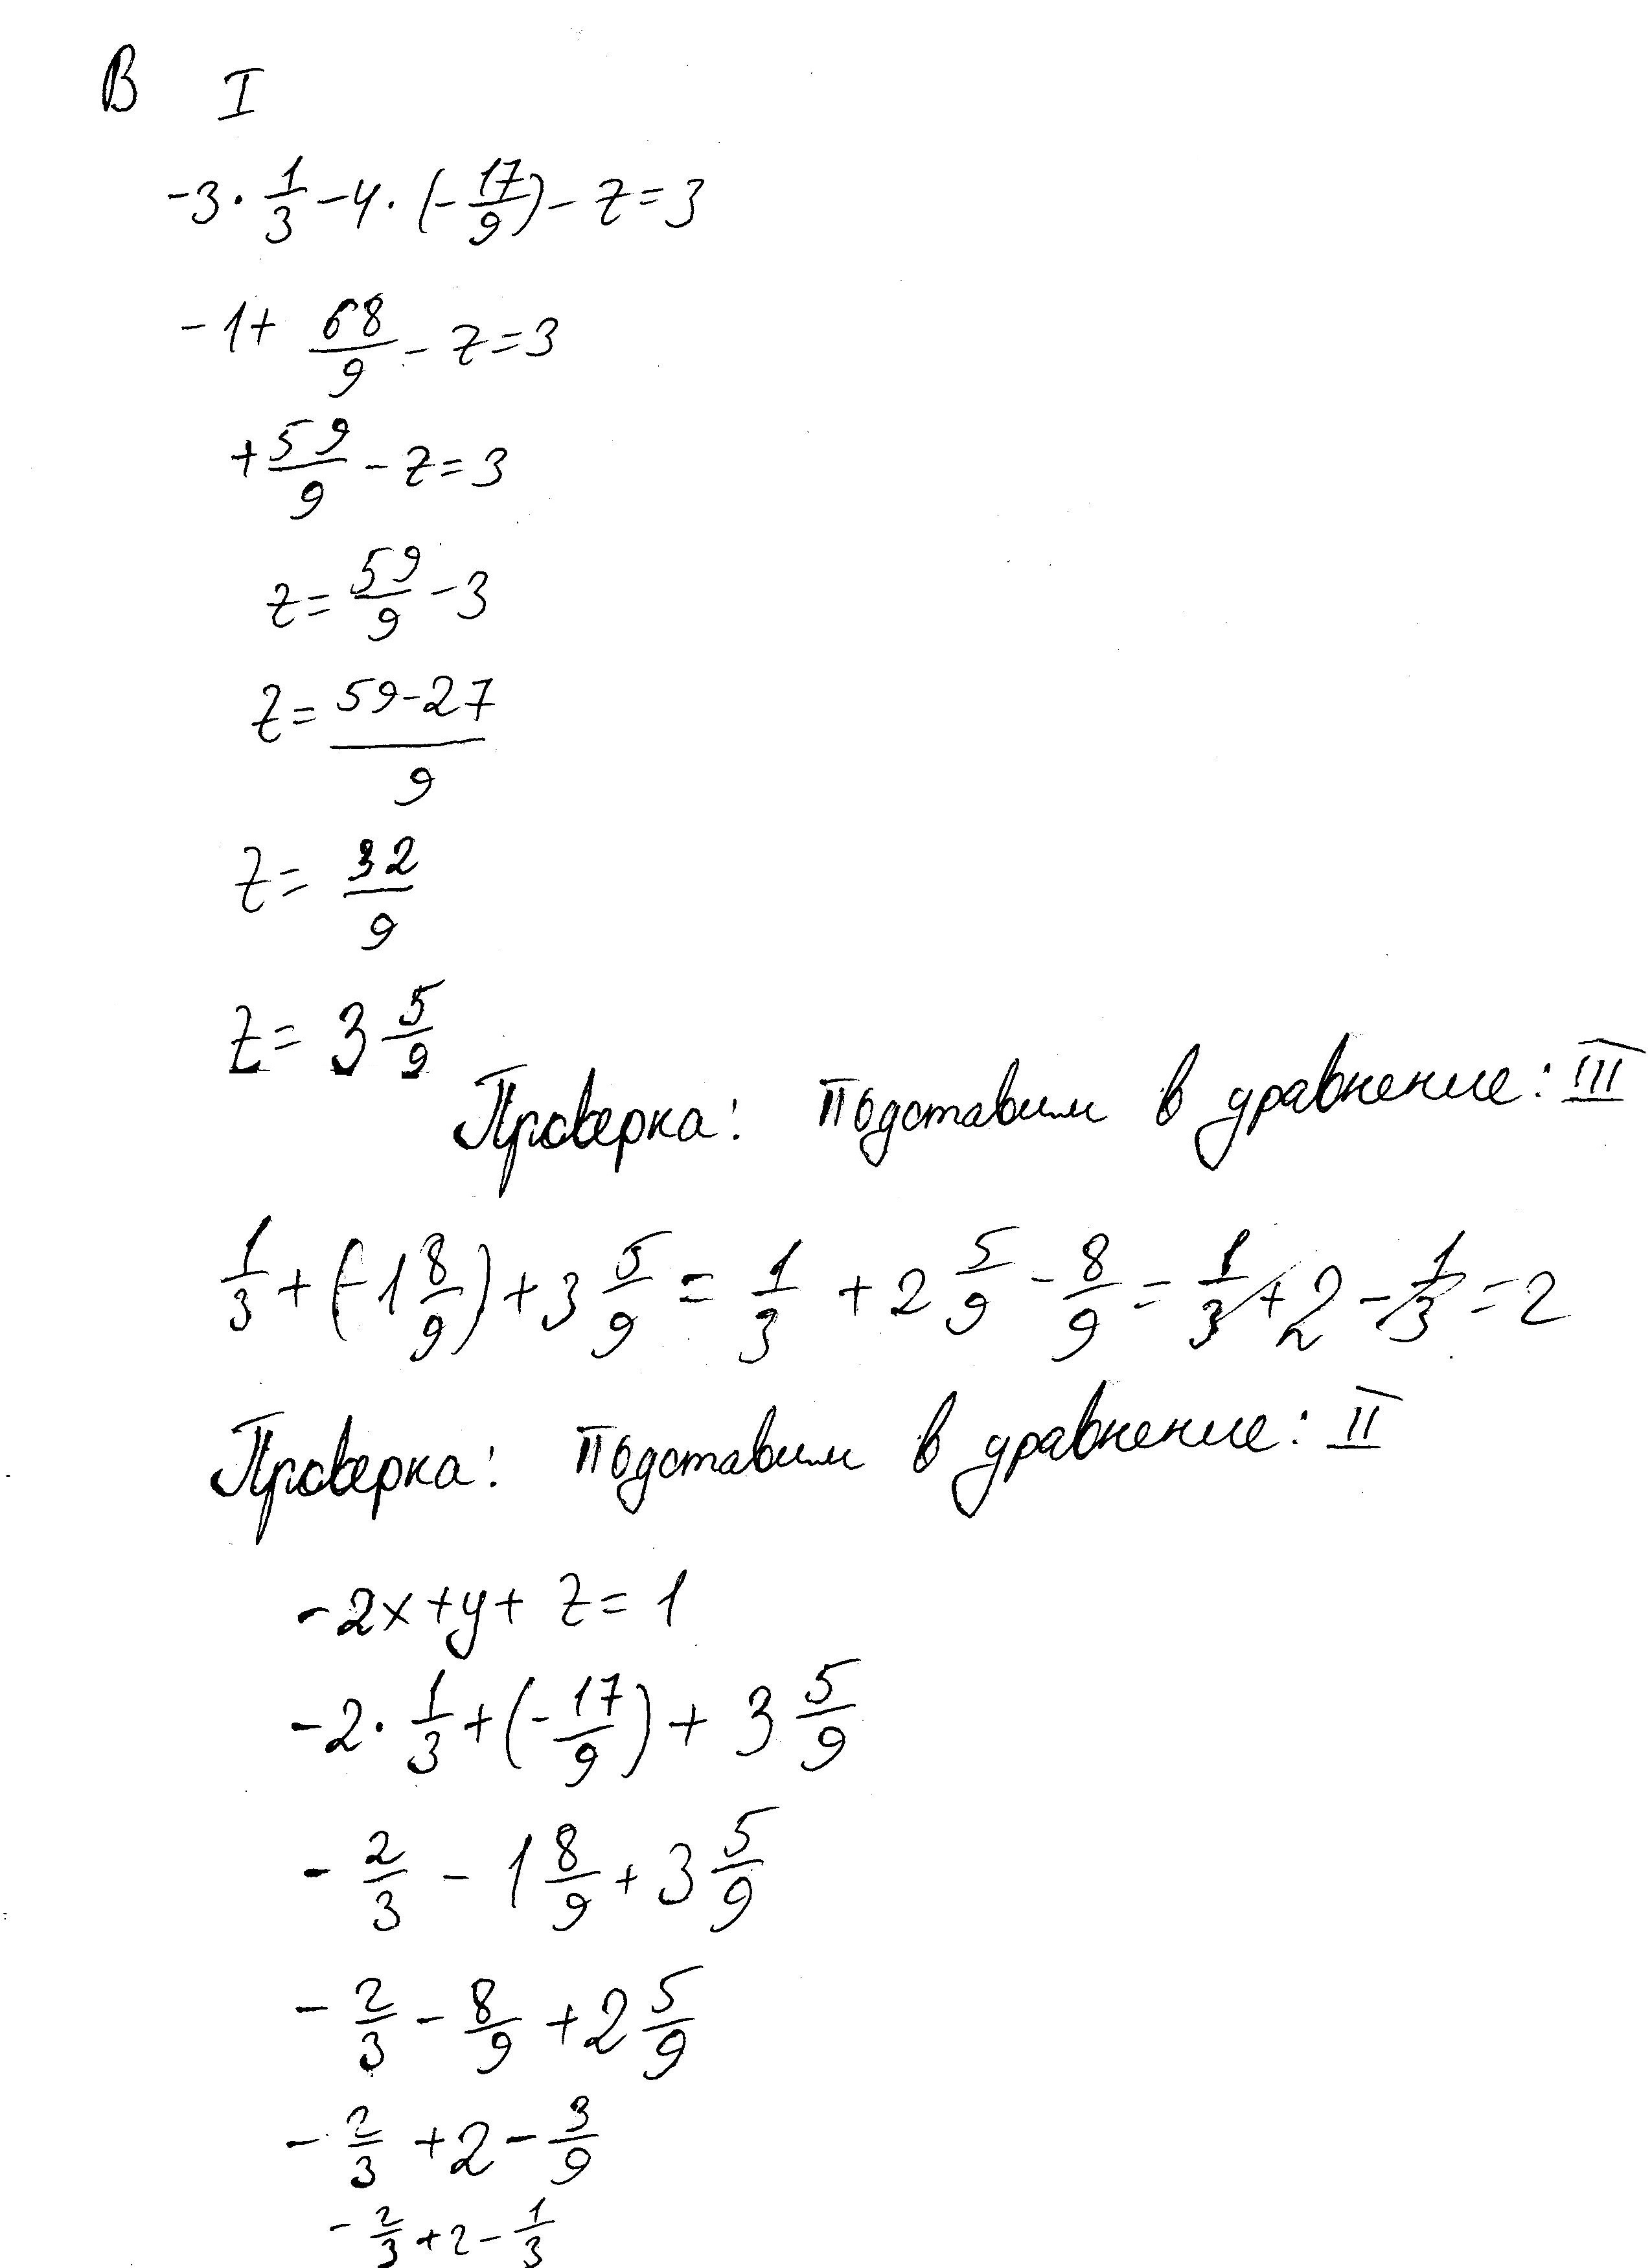 В I
-3·1/3-4·(-17/9)-z=3
-1+68/9-z=3
+59/9-z=3
z=59/9-3
z=(59-27)/9
z=32/9
z=3 5/9
Проверка: Подставим в уравнение: III
1/3+(-1 8/9)+3 5/9=1/3+2 5/9-8/9=1/3+2-1/3=2
Проверка: Подставим в уравнение: II
-2x+y+z=1
-2·1/3+(-17/9)+3 5/9
-2/3-1 8/9+3 5/9
-2/3-8/9+2 5/9
-2/3+2-3/9
-2/3+2-1/3